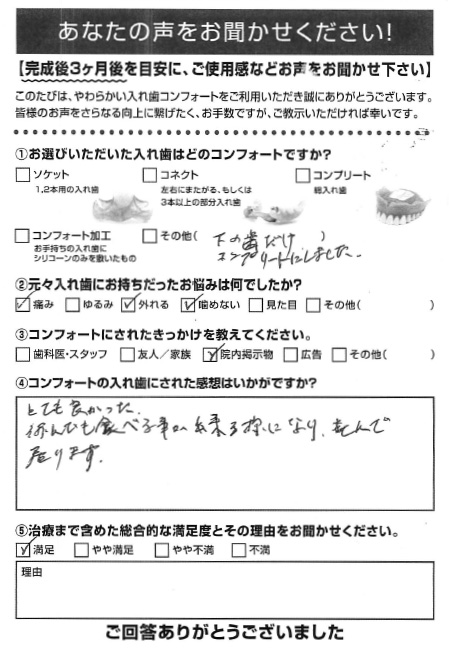 あなたの声をお聞かせください!
【完成後3ヶ月後を目安に、ご使用感などお声をお聞かせ下さい】
このたびは、やわらかい入れ歯コンフォートをご利用いただき誠にありがとうございます。
皆様のお声をさらなる向上に繋げたく、お手数ですが、ご教示いただければ幸いです。
①お選びいただいた入れ歯はどのコンフォートですか?
□ソケット □コネクト □コンプリート
1,2本用の入れ歯 左右にまたがる、もしくは 総入れ歯
3本以上の部分入れ歯
□コンフォート加工 □その他( 下の歯だけ )
お手持ちの入れ歯に コンプリートにしました。
シリコーンのみを敷いたもの
②元々入れ歯にお持ちだったお悩みは何でしたか?
☑痛み □ゆるみ ☑外れる ☑噛めない □見た目 □その他( )
③コンフォートにされたきっかけを教えてください。
□歯科医・スタッフ □友人/家族 ☑院内掲示物 □広告 □その他( )
④コンフォートの入れ歯にされた感想はいかがですか?
とても良かった。
何んでも食べる事が出来る様になり、喜んで
居ります。
⑤治療まで含めた総合的な満足度とその理由をお聞かせください。
☑満足 □やや満足 □やや不満 □不満
理由
ご回答ありがとうございました